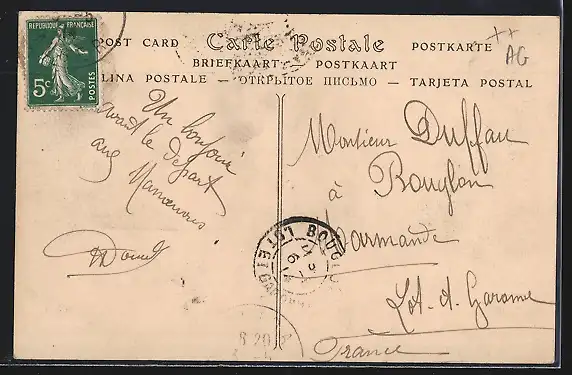 RÉPUBLIQUE FRANÇAISE
5c
POSTES
POST CARD Carte Postale POSTKARTE
BRIEFKAART — POSTKAART
LINA POSTALE — ОТКРЫТОЕ ПИСЬМО — TARJETA POSTAL
++
AG
Un bonjour
avant le départ
aux Manœuvres
Monsieur Duffau
à Bouglon
Marmande
Lot-et-Garonne
France
BOUGLON
LOT ET
8 20